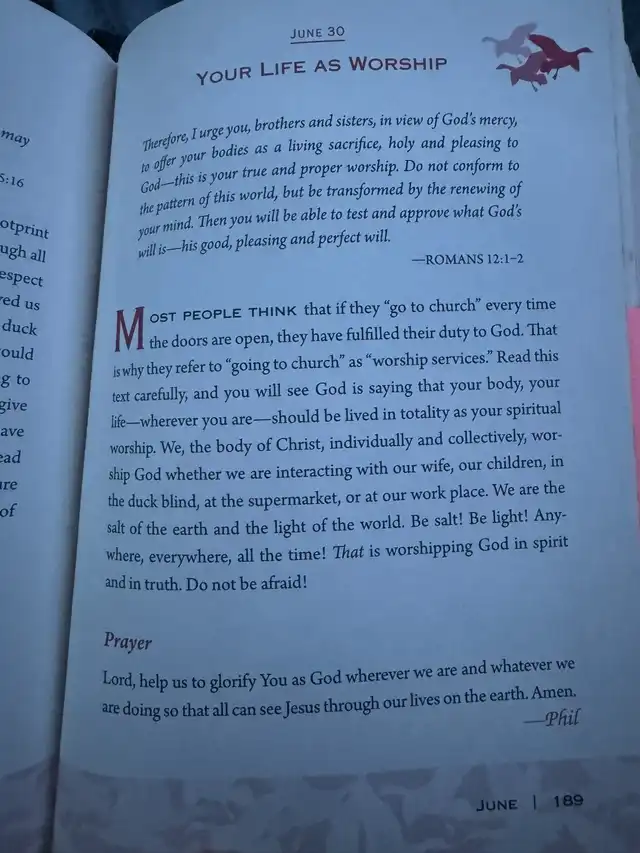 may
5:16
otprint
ugh all
espect
red us
duck
ould
g to
give
ave
ead
are
of
JUNE 30
YOUR LIFE AS WORSHIP
Therefore, I urge you, brothers and sisters, in view of God's mercy,
to offer your bodies as a living sacrifice, holy and pleasing to
God—this is your true and proper worship. Do not conform to
the pattern of this world, but be transformed by the renewing of
your mind. Then you will be able to test and approve what God's
will is—his good, pleasing and perfect will.
—ROMANS 12:1–2
MOST PEOPLE THINK that if they “go to church” every time
the doors are open, they have fulfilled their duty to God. That
is why they refer to “going to church” as “worship services.” Read this
text carefully, and you will see God is saying that your body, your
life—wherever you are—should be lived in totality as your spiritual
worship. We, the body of Christ, individually and collectively, wor-
ship God whether we are interacting with our wife, our children, in
the duck blind, at the supermarket, or at our work place. We are the
salt of the earth and the light of the world. Be salt! Be light! Any-
where, everywhere, all the time! That is worshipping God in spirit
and in truth. Do not be afraid!
Prayer
Lord, help us to glorify You as God wherever we are and whatever we
are doing so that all can see Jesus through our lives on the earth. Amen.
—Phil
JUNE | 189